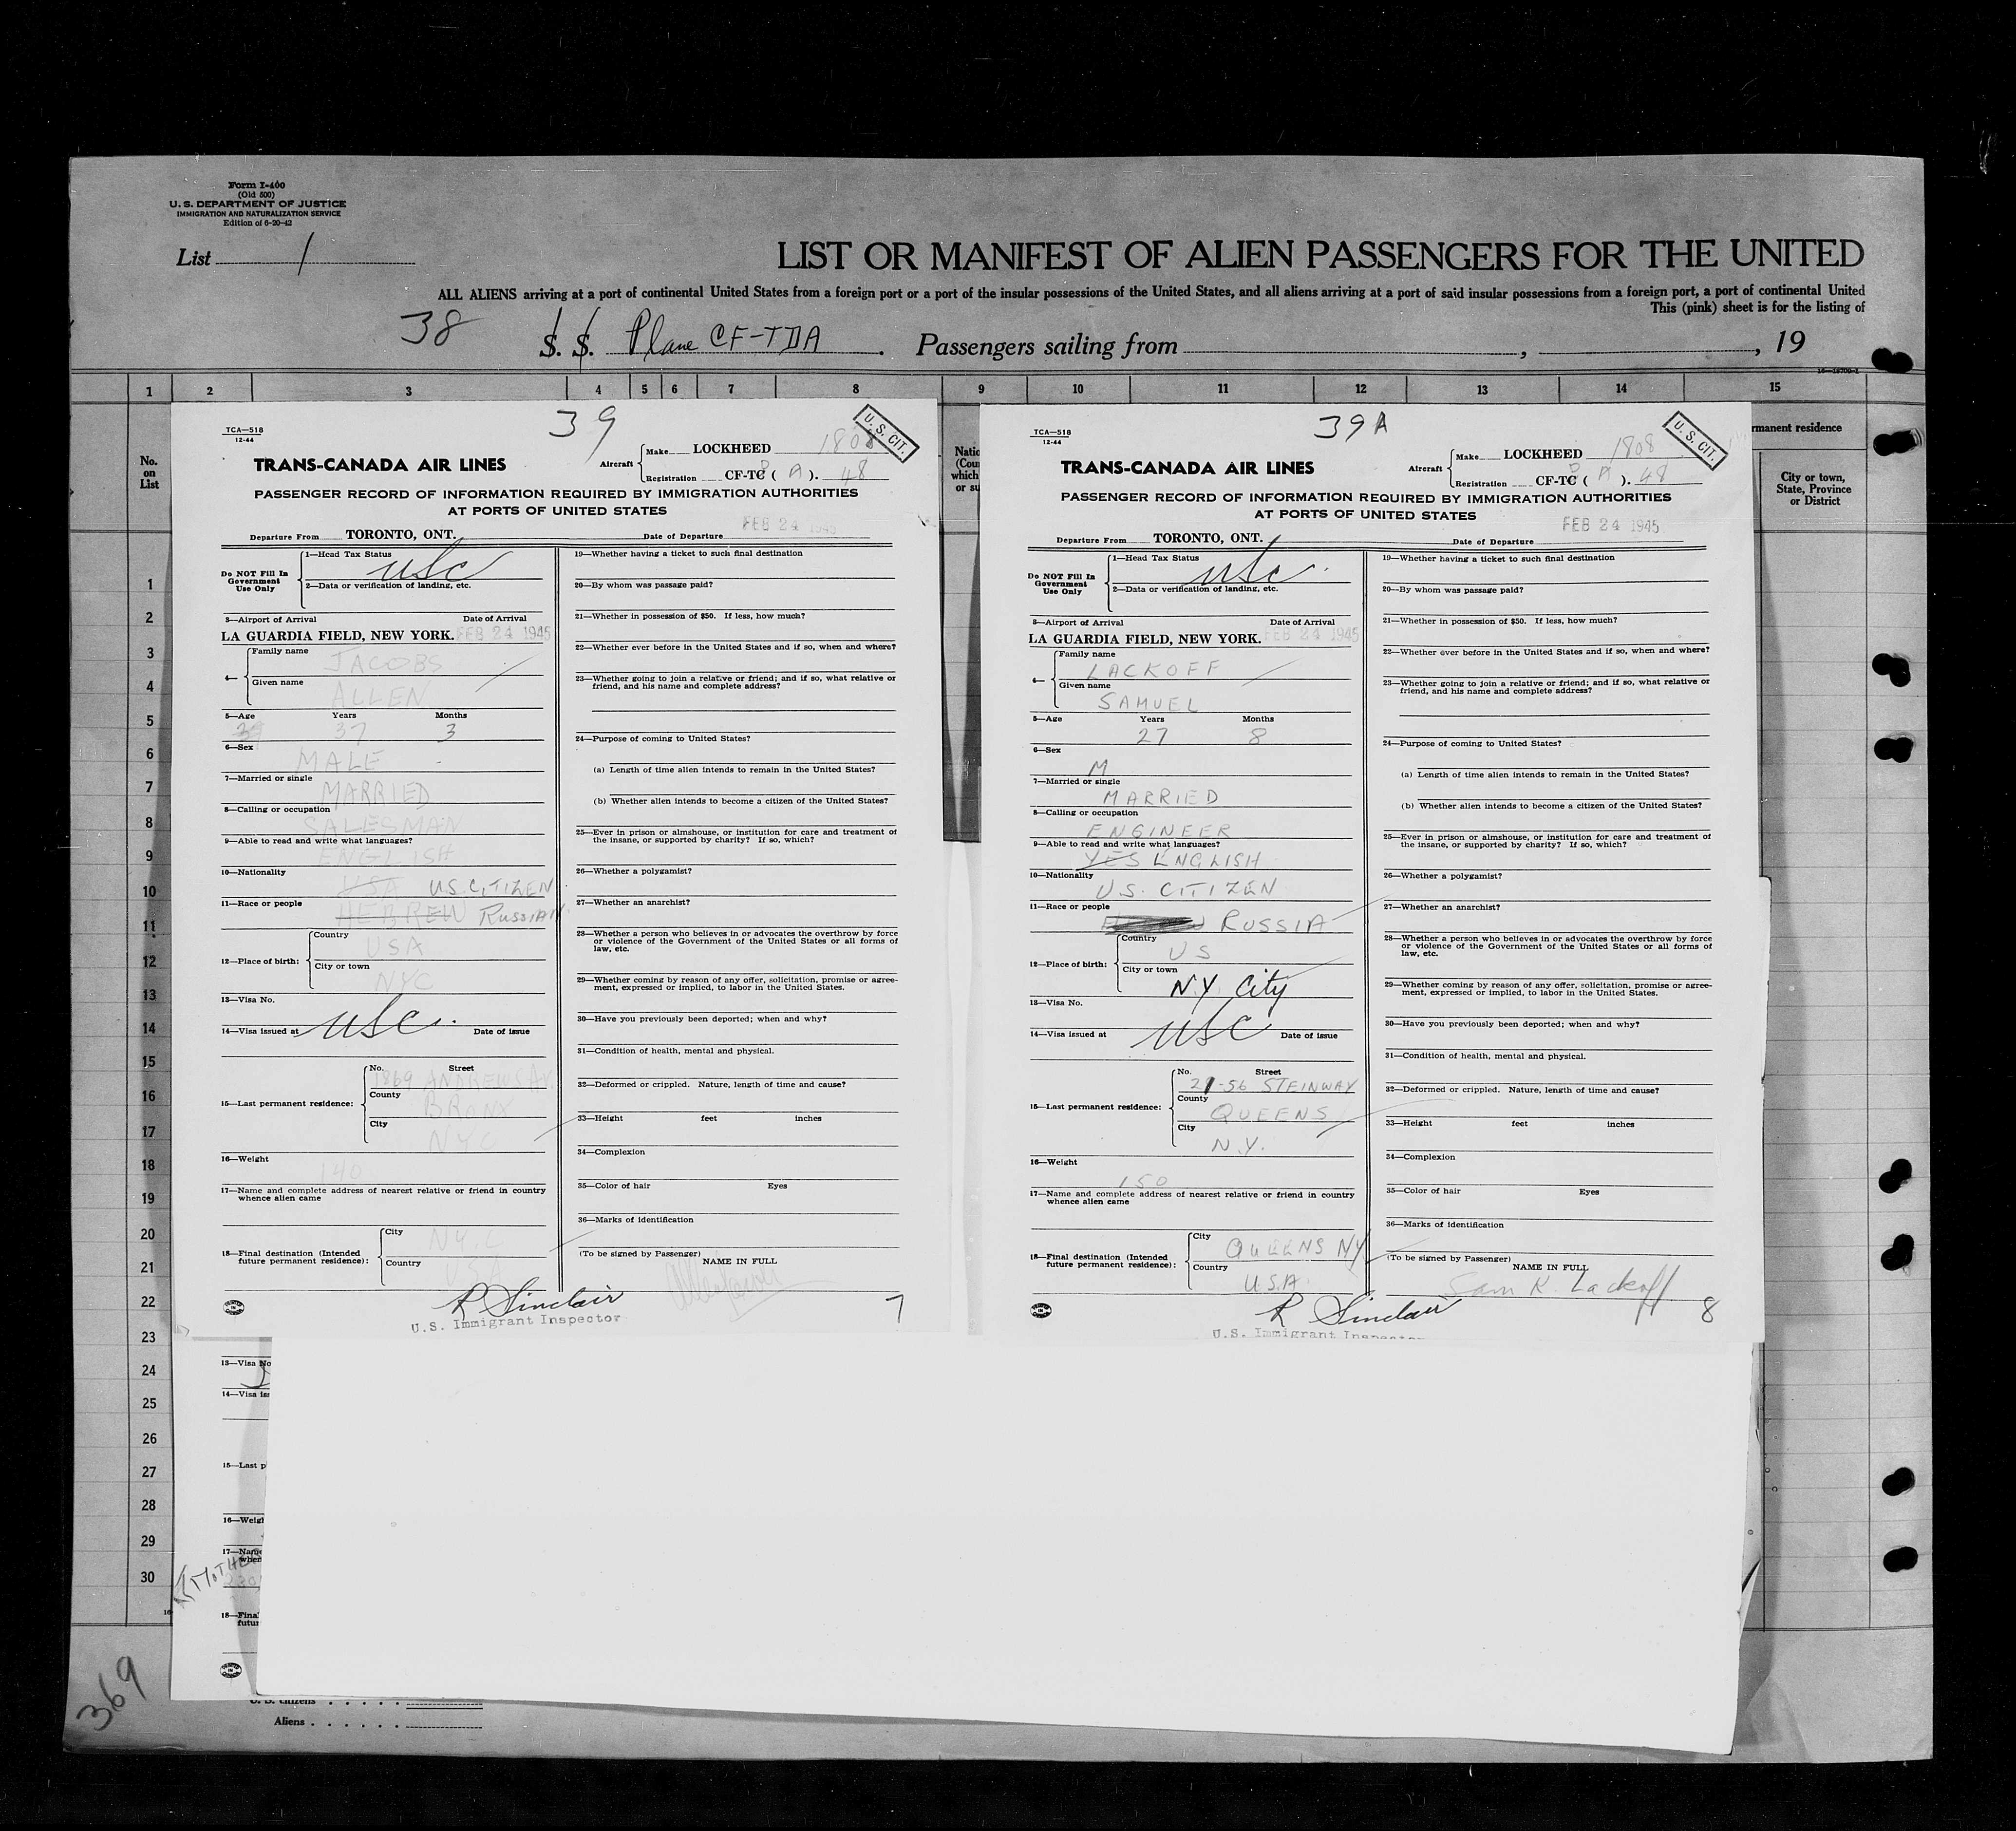 Form I-400
(Old 500)
U. S. DEPARTMENT OF JUSTICE
IMMIGRATION AND NATURALIZATION SERVICE
Edition of 6-20-42
List 1
LIST OR MANIFEST OF ALIEN PASSENGERS FOR THE UNITED
ALL ALIENS arriving at a port of continental United States from a foreign port or a port of the insular possessions of the United States, and all aliens arriving at a port of said insular possessions from a foreign port, a port of continental United
This (pink) sheet is for the listing of
38 S. S. Plane CF-TDA. Passengers sailing from , , 19
1 2 3 4 5 6 7 8 9 10 11 12 13 14 15
No. on List
39
U. S. CIT.
TCA—518
12-44
TRANS-CANADA AIR LINES
Aircraft
Make LOCKHEED 1808
Registration CF-TC D ( A ). 48
PASSENGER RECORD OF INFORMATION REQUIRED BY IMMIGRATION AUTHORITIES
AT PORTS OF UNITED STATES
Departure From TORONTO, ONT. Date of Departure FEB 24 1945
Do NOT Fill In Government Use Only
1—Head Tax Status usc
2—Data or verification of landing, etc.
3—Airport of Arrival Date of Arrival
LA GUARDIA FIELD, NEW YORK. FEB 24 1945
4— Family name JACOBS
Given name ALLEN
5—Age Years 37 Months 3
6—Sex MALE
7—Married or single MARRIED
8—Calling or occupation SALESMAN
9—Able to read and write what languages? ENGLISH
10—Nationality USA U.S. CITIZEN
11—Race or people HEBREW RUSSIAN
12—Place of birth: Country USA
City or town NYC
13—Visa No.
14—Visa issued at usc Date of issue
15—Last permanent residence: No. Street 1869 ANDREWS AV.
County BRONX
City NYC
16—Weight 140
17—Name and complete address of nearest relative or friend in country
whence alien came
18—Final destination (Intended
future permanent residence): City N.Y.C
Country USA
R Sinclair
U.S. Immigrant Inspector
19—Whether having a ticket to such final destination
20—By whom was passage paid?
21—Whether in possession of $50. If less, how much?
22—Whether ever before in the United States and if so, when and where?
23—Whether going to join a relative or friend; and if so, what relative or
friend, and his name and complete address?
24—Purpose of coming to United States?
(a) Length of time alien intends to remain in the United States?
(b) Whether alien intends to become a citizen of the United States?
25—Ever in prison or almshouse, or institution for care and treatment of
the insane, or supported by charity? If so, which?
26—Whether a polygamist?
27—Whether an anarchist?
28—Whether a person who believes in or advocates the overthrow by force
or violence of the Government of the United States or all forms of
law, etc.
29—Whether coming by reason of any offer, solicitation, promise or agree-
ment, expressed or implied, to labor in the United States.
30—Have you previously been deported; when and why?
31—Condition of health, mental and physical.
32—Deformed or crippled. Nature, length of time and cause?
33—Height feet inches
34—Complexion
35—Color of hair Eyes
36—Marks of identification
(To be signed by Passenger) NAME IN FULL
7
39A
U. S. CIT.
TCA—518
12-44
TRANS-CANADA AIR LINES
Aircraft
Make LOCKHEED 1808
Registration CF-TC D ( A ). 48
PASSENGER RECORD OF INFORMATION REQUIRED BY IMMIGRATION AUTHORITIES
AT PORTS OF UNITED STATES
Departure From TORONTO, ONT. Date of Departure FEB 24 1945
Do NOT Fill In Government Use Only
1—Head Tax Status usc
2—Data or verification of landing, etc.
3—Airport of Arrival Date of Arrival
LA GUARDIA FIELD, NEW YORK. FEB 24 1945
4— Family name LACKOFF
Given name SAMUEL
5—Age Years 27 Months 8
6—Sex M
7—Married or single MARRIED
8—Calling or occupation ENGINEER
9—Able to read and write what languages? YES ENGLISH
10—Nationality U.S. CITIZEN
11—Race or people RUSSIA
12—Place of birth: Country US
City or town N.Y. City
13—Visa No.
14—Visa issued at usc Date of issue
15—Last permanent residence: No. Street 21-56 STEINWAY
County QUEENS
City N.Y.
16—Weight 150
17—Name and complete address of nearest relative or friend in country
whence alien came
18—Final destination (Intended
future permanent residence): City QUEENS NY
Country U.S.A.
R Sinclair
U.S. Immigrant Inspector
19—Whether having a ticket to such final destination
20—By whom was passage paid?
21—Whether in possession of $50. If less, how much?
22—Whether ever before in the United States and if so, when and where?
23—Whether going to join a relative or friend; and if so, what relative or
friend, and his name and complete address?
24—Purpose of coming to United States?
(a) Length of time alien intends to remain in the United States?
(b) Whether alien intends to become a citizen of the United States?
25—Ever in prison or almshouse, or institution for care and treatment of
the insane, or supported by charity? If so, which?
26—Whether a polygamist?
27—Whether an anarchist?
28—Whether a person who believes in or advocates the overthrow by force
or violence of the Government of the United States or all forms of
law, etc.
29—Whether coming by reason of any offer, solicitation, promise or agree-
ment, expressed or implied, to labor in the United States.
30—Have you previously been deported; when and why?
31—Condition of health, mental and physical.
32—Deformed or crippled. Nature, length of time and cause?
33—Height feet inches
34—Complexion
35—Color of hair Eyes
36—Marks of identification
(To be signed by Passenger) NAME IN FULL
Sam K. Lackoff
8
rmanent residence
City or town,
State, Province
or District
1
2
3
4
5
6
7
8
9
10
11
12
13
14
15
16
17
18
19
20
21
22
23
24
25
26
27
28
29
30
13—Visa No
14—Visa iss
15—Last p
16—Weigh
17—Name
when
MOTHE
18—Fina
futur
369
U. S. Citizens
Aliens